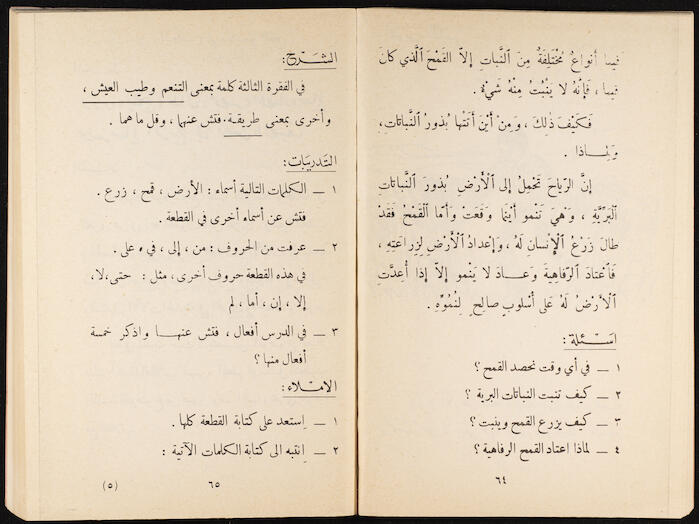 فيها أنواعٌ مُخْتَلِفَةٌ مِنَ ٱلنَّباتِ إلاّ القَمْحَ ٱلَّذي كانَ
فيها ، فَإنَّهُ لا يَنْبُتُ مِنْهُ شَيْءٌ .
فَكَيْفَ ذٰلِكَ ، وَمِنْ أَيْنَ أَتَتْها بُذورُ ٱلنَّباتاتِ،
وَلِمـاذا .
إنَّ الرِّياحَ تَحْمِلُ إلى ٱلْأَرْضِ بُذورَ ٱلنَّباتاتِ
البَرِّيَّةِ ، وَهْيَ تَنْمو أَيْنَما وَقَعَتْ وَأَمّا القَمْحُ فَقَدْ
طالَ زَرْعُ ٱلْإنْسانِ لَهُ ، وَإعْدادُ ٱلْأَرْضِ لِزِراعَتِهِ ،
فَاعْتادَ الرَّفاهِيةَ وَعـادَ لا يَنْمو إلاّ إذا أُعِدَّتِ
ٱلْأَرْضُ لَهُ عَلى أُسْلوبٍ صالِحٍ لِنُمُوِّهِ .
اسْئلة :
١ ـ في أي وقت نحصد القمح ؟
٢ ـ كيف تنبت النباتات البرية ؟
٣ ـ كيف يزرع القمح وينبت ؟
٤ ـ لماذا اعتاد القمح الرفاهية ؟
٦٤
الشَـرْح :
في الفقرة الثالثة كلمة بمعنى التنعم وطيب العيش ،
وأخرى بمعنى طريقـة. فتش عنهما ، وقل ما هما .
التَدريبَات :
١ ـ الكلمات التالية أسماء : الأرض ، قمح ، زرع .
فتش عن أسماء أخرى في القطعة .
٢ ـ عرفت من الحروف : من ، إلى ، في ، على .
في هذه القطعة حروف أخرى، مثل : حتى، لا،
إلا ، إن ، أما ، لم
٣ ـ في الدرس أفعال ، فتش عنهـا واذكر خمسة
أفعال منها ؟
الامْلاء :
١ ـ إستعد على كتابة القطعة كلها .
٢ ـ إنتبه الى كتابة الكلمات الآتية :
٦٥
(٥)